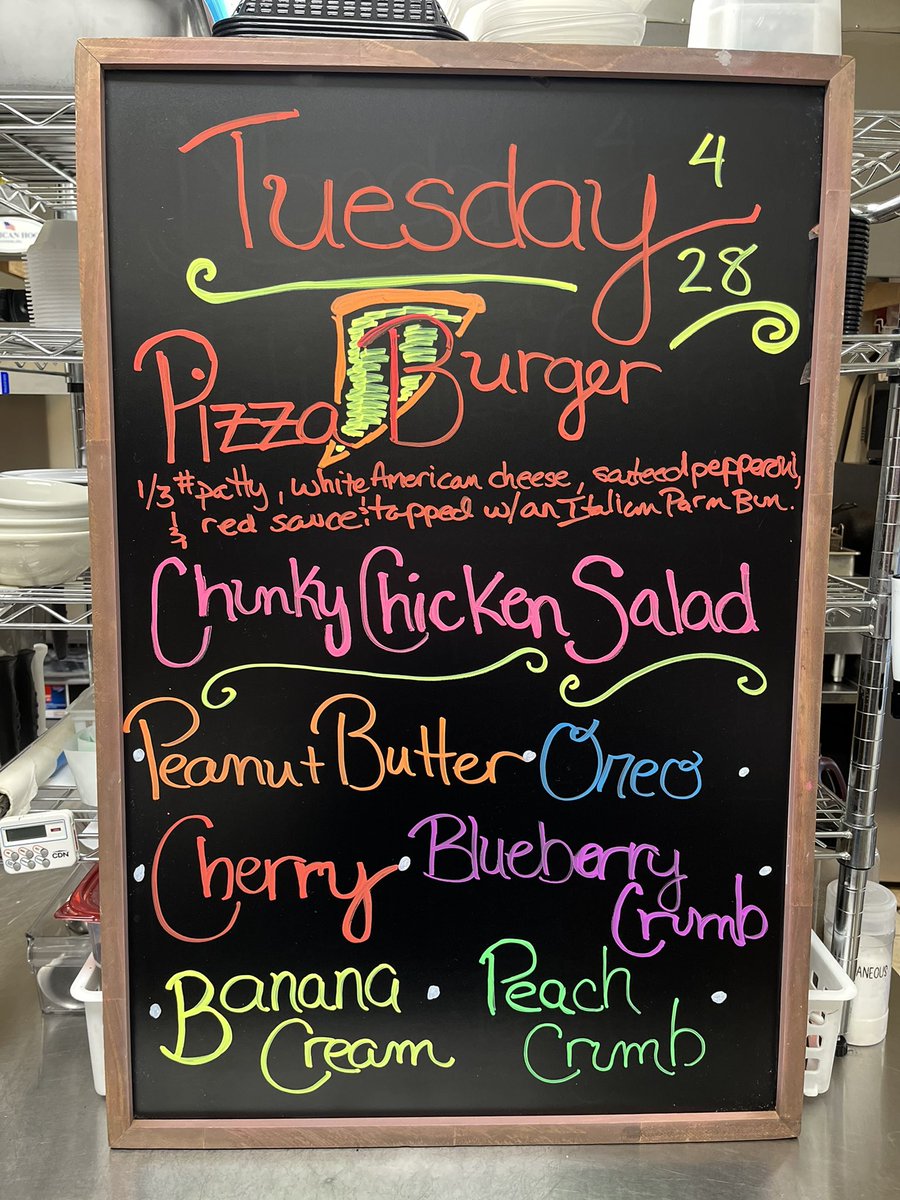 Tuesday 4
28
Pizza Burger
1/3 # patty, white American cheese, sauteed pepperoni,
& red sauce: topped w/an Italian Parm Bun.
Chunky Chicken Salad
Peanut Butter Oreo
Cherry Blueberry
Crumb
Banana Peach
Cream Crumb
CDN
ANEOUS